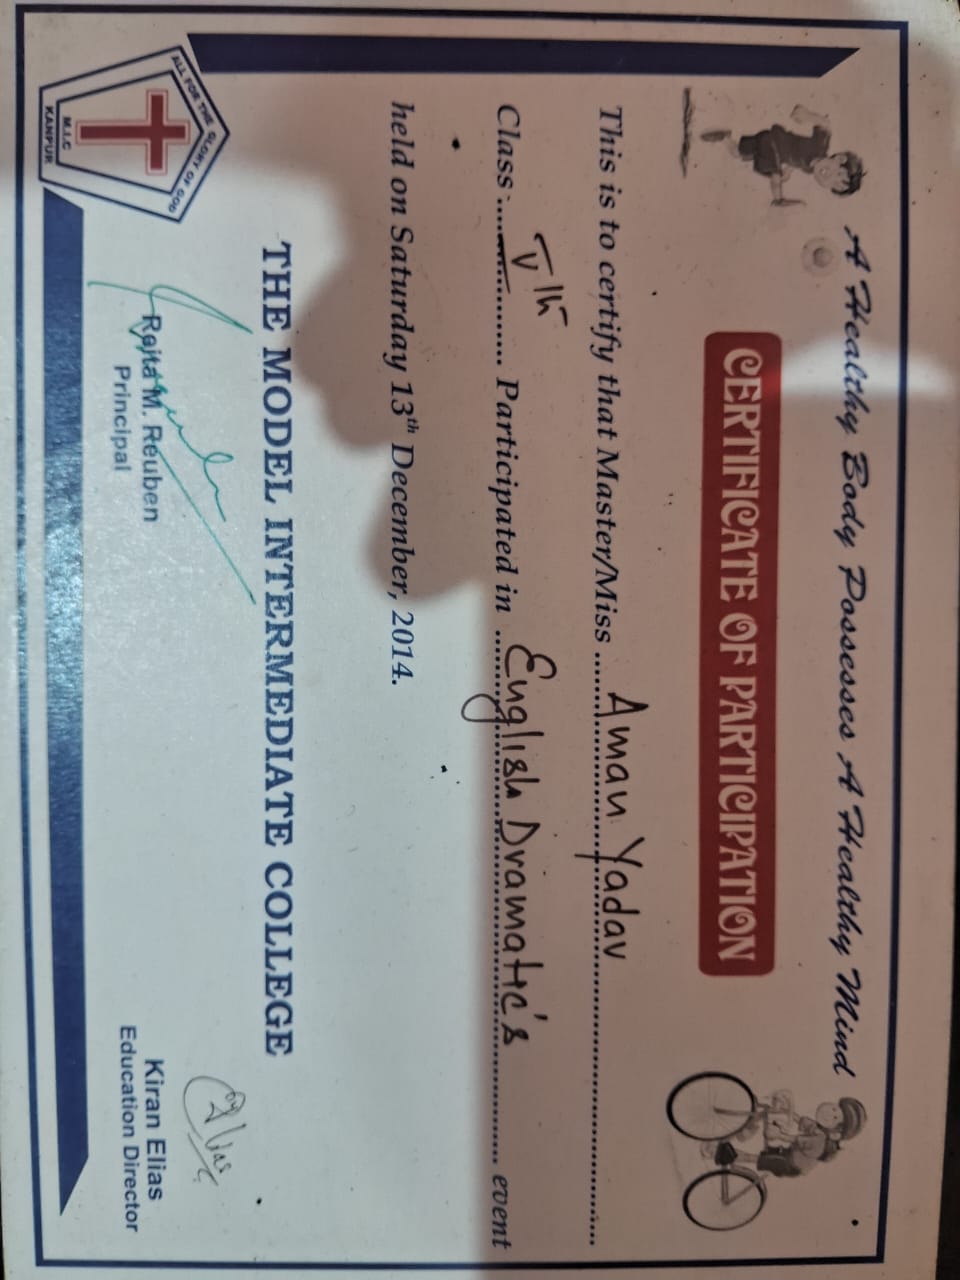 A Healthy Body Possesses A Healthy Mind
CERTIFICATE OF PARTICIPATION
This is to certify that Master/Miss ..... Aman Yadav .....
Class ..... Vth ..... Participated in ..... English Dramatic's ..... event
held on Saturday 13th December, 2014.
THE MODEL INTERMEDIATE COLLEGE
ALL FOR THE GLORY OF GOD
M.I.C
KANPUR
Rajta M. Reuben
Principal
Kiran Elias
Education Director